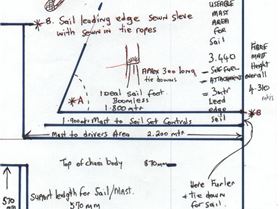 * B. Sail leading edge sewn sleve
with sewn in tie ropes
USEABLE
MAST
AREA
FOR
Sail
3.440
FIBRE
MAST
Height
overall
4.310
mtrs
Approx 300 long
tie downs
Ideal sail foot
Boomless
1.800 mtr
* A
Leed
edge
sail
* B
1.900mtr Mast to Sail Set Controls
Mast to drivers Area 2.200 mtr
Top of chain body 870mm
Support length for Sail/Mast.
570 mm
570
mm
Here Furler
+ tie down
for sail.